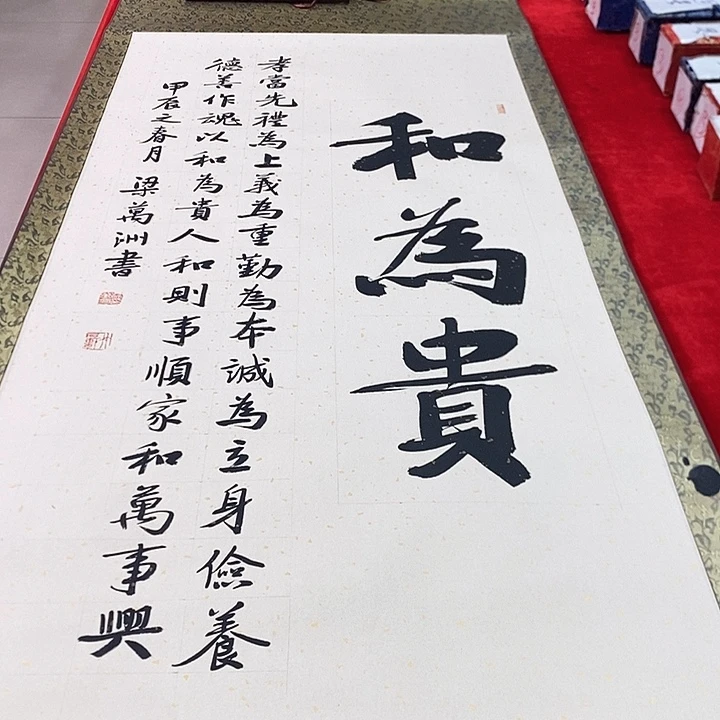 和為貴
孝當先禮為上義為重勤為本誠為立身儉養
德善作魂以和為貴人和則事順家和萬事興
甲辰之春月 梁萬洲書